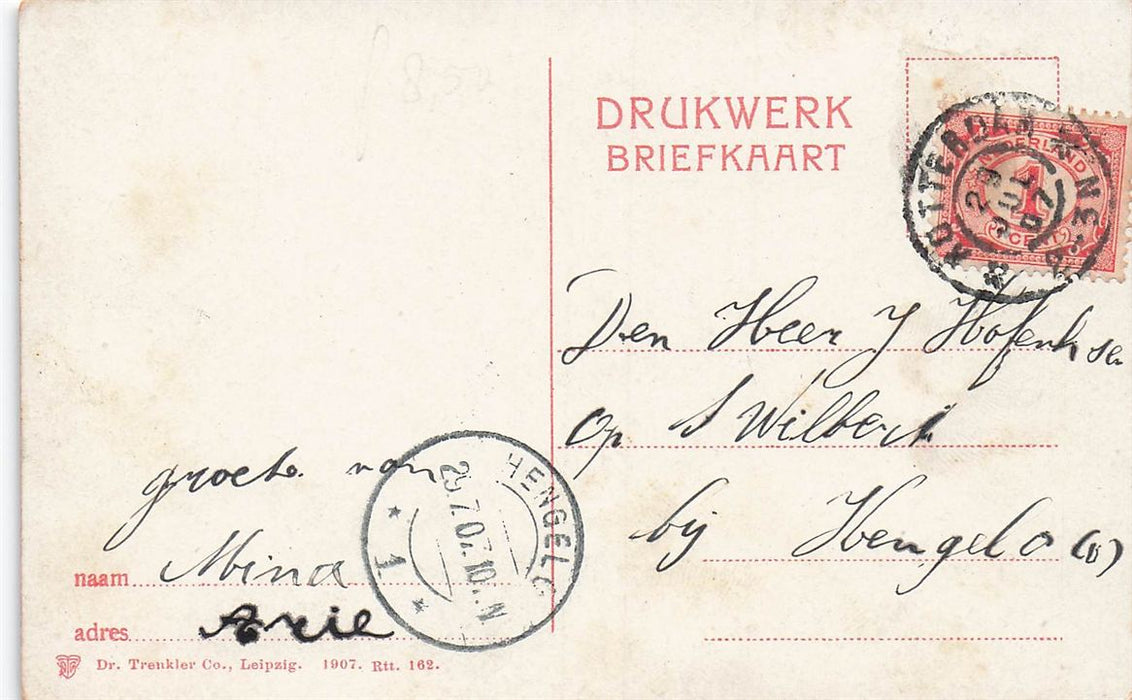 DRUKWERK
BRIEFKAART
ROTTERDAM
NEDERLAND
1
CENT
29 JUL 07
Den Heer J
Op 't Wilbert
bij Hengelo (O)
groete van
Mina
Arie
HENGELO
29.7.07.10.N
1
naam
adres
Dr. Trenkler Co., Leipzig. 1907. Rtt. 162.